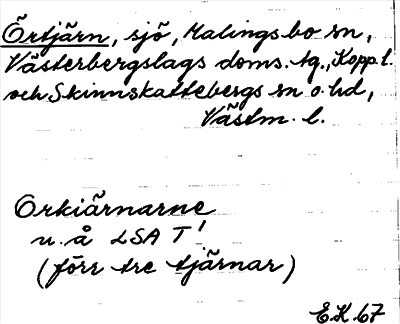 Örtjärn, sjö, Malingsbo sn,
Västerbergslags doms. tg., Kopp. l.
och Skinnskattebergs sn o. hd,
Västm. l.
Orkiärnarne
u. å LSA T1
(förr tre tjärnar)
EK 67